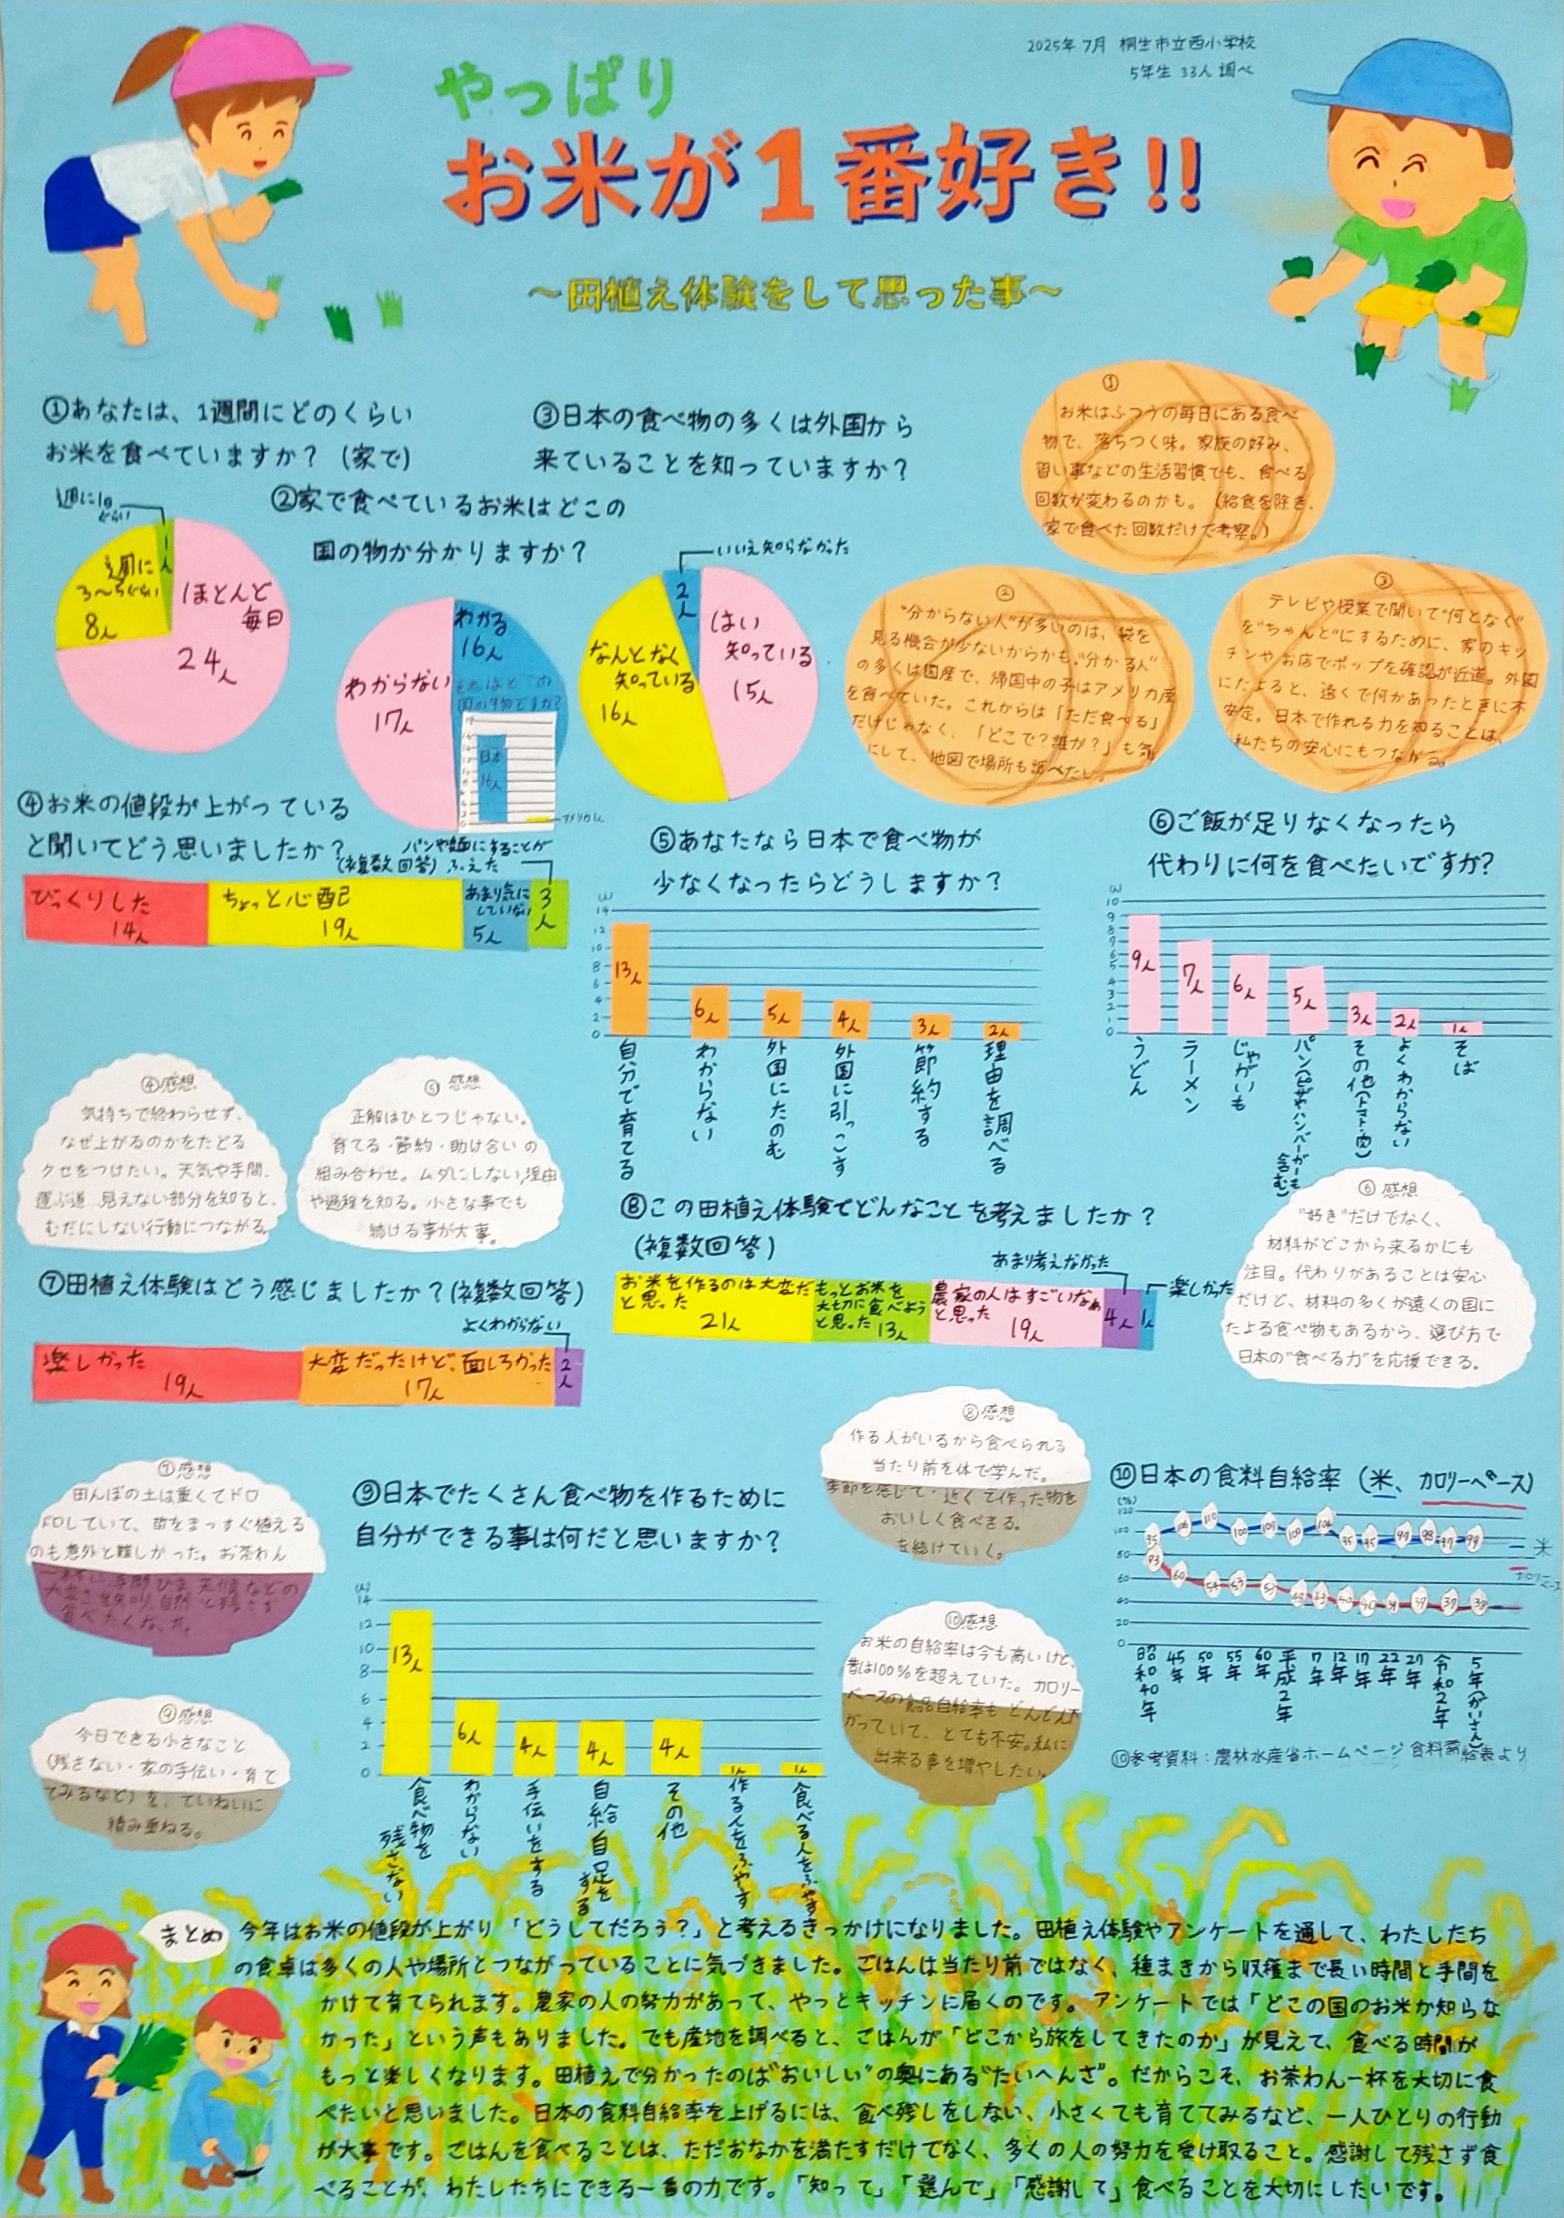 2025年7月 桐生市立西小学校
5年生 33人 調べ
やっぱり
お米が1番好き!!
～田植え体験をして思った事～
①あなたは、1週間にどのくらい
お米を食べていますか？(家で)
週に1回
ぐらい
1人
週に
3～5ぐらい
8人
ほとんど
毎日
24人
②家で食べているお米はどこの
国の物か分かりますか？
わかる
16人
わからない
17人
それはどこの
国の物ですか？
日本
16人
アメリカ1人
③日本の食べ物の多くは外国から
来ていることを知っていますか？
いいえ知らなかった
2人
はい
知っている
15人
なんとなく
知っている
16人
①
お米はふつうの毎日にある食べ
物で、落ちつく味。家族の好み、
習い事などの生活習慣でも、食べる
回数が変わるのかも。(給食を除き、
家で食べた回数だけで考察。)
②
“分からない人”が多いのは、袋を
見る機会が少ないからかも。“分かる人”
の多くは国産で、帰国中の子はアメリカ産
を食べていた。これからは「ただ食べる」
だけじゃなく、「どこで？誰が？」も気
にして、地図で場所も調べたい。
③
テレビや授業で聞いて“何となく”
を“ちゃんと”にするために、家のキッ
チンやお店でポップを確認が近道。外国
にたよると、遠くで何かあったときに不
安定。日本で作れる力を知ることは、
私たちの安心にもつながる。
④お米の値段が上がっている
と聞いてどう思いましたか？
(複数回答)
パンや麺にすることが
ふえた
びっくりした
14人
ちょっと心配
19人
あまり気に
していない
5人
3人
⑤あなたなら日本で食べ物が
少なくなったらどうしますか？
(人)
14
12
10
8
6
4
2
0
13人
6人
5人
4人
3人
2人
自分で育てる
わからない
外国にたのむ
外国に引っこす
節約する
理由を調べる
⑥ご飯が足りなくなったら
代わりに何を食べたいですか？
(人)
10
9
8
7
6
5
4
3
2
1
0
9人
7人
6人
5人
3人
2人
1人
うどん
ラーメン
じゃがいも
パン(ピザやハンバーガーも
含む)
その他(トマト・肉)
よくわからない
そば
④感想
気持ちで終わらせず、
なぜ上がるのかをたどる
クセをつけたい。天気や手間、
運ぶ道…見えない部分を知ると、
むだにしない行動につながる。
⑤ 感想
正解はひとつじゃない。
育てる・節約・助け合いの
組み合わせ。ムダにしない、理由
や過程を知る。小さな事でも
続ける事が大事。
⑥ 感想
“好き”だけでなく、
材料がどこから来るかにも
注目。代わりがあることは安心
だけど、材料の多くが遠くの国に
たよる食べ物もあるから、選び方で
日本の“食べる力”を応援できる。
⑦田植え体験はどう感じましたか？(複数回答)
よくわからない
楽しかった
19人
大変だったけど、面しろかった
17人
2人
⑧この田植え体験でどんなことを考えましたか？
(複数回答)
あまり考えなかった
楽しかった
お米を作るのは大変だ
と思った
21人
もっとお米を
大切に食べよう
と思った 13人
農家の人はすごいなぁ
と思った
19人
4人
1人
⑦感想
田んぼの土は重くてドロ
ドロしていて、苗をまっすぐ植える
のも意外と難しかった。お茶わん
一杯に、手間ひま、天候などの
大変さを知り、自然と残さず
食べたくなった。
⑧感想
作る人がいるから食べられる
当たり前を体で学んだ。
季節を感じて・近くで作った物を
おいしく食べきる。
を続けていく。
⑨日本でたくさん食べ物を作るために
自分ができる事は何だと思いますか？
(人)
14
12
10
8
6
4
2
0
13人
6人
4人
4人
4人
1人
1人
食べ物を
残さない
わからない
手伝いをする
自給自足を
する
その他
作る人をふやす
食べる人をふやす
⑨感想
今日できる小さなこと
(残さない・家の手伝い・育て
てみるなど)を、ていねいに
積み重ねる。
⑩感想
お米の自給率は今も高いけど、
昔は100％を超えていた。カロリー
ベースの食品自給率もどんどん下
がっていて、とても不安。私に
出来る事を増やしたい。
⑩日本の食料自給率(米、カロリーベース)
(%)
120
100
80
60
40
20
0
95
106
110
100
107
100
104
95
95
97
98
97
99
73
60
54
53
53
48
43
40
40
39
39
37
38
米
カロリーベース
昭和40年
45年
50年
55年
60年
平成2年
7年
12年
17年
22年
27年
令和2年
5年(がいさん)
⑩参考資料：農林水産省ホームページ 食料需給表より
まとめ
今年はお米の値段が上がり「どうしてだろう？」と考えるきっかけになりました。田植え体験やアンケートを通して、わたしたち
の食卓は多くの人や場所とつながっていることに気づきました。ごはんは当たり前ではなく、種まきから収穫まで長い時間と手間を
かけて育てられます。農家の人の努力があって、やっとキッチンに届くのです。アンケートでは「どこの国のお米か知らな
かった」という声もありました。でも産地を調べると、ごはんが「どこから旅をしてきたのか」が見えて、食べる時間が
もっと楽しくなります。田植えで分かったのは“おいしい”の奥にある“たいへんさ”。だからこそ、お茶わん一杯を大切に食
べたいと思いました。日本の食料自給率を上げるには、食べ残しをしない、小さくても育ててみるなど、一人ひとりの行動
が大事です。ごはんを食べることは、ただおなかを満たすだけでなく、多くの人の努力を受け取ること。感謝して残さず食
べることが、わたしたちにできる一番の力です。「知って」「選んで」「感謝して」食べることを大切にしたいです。